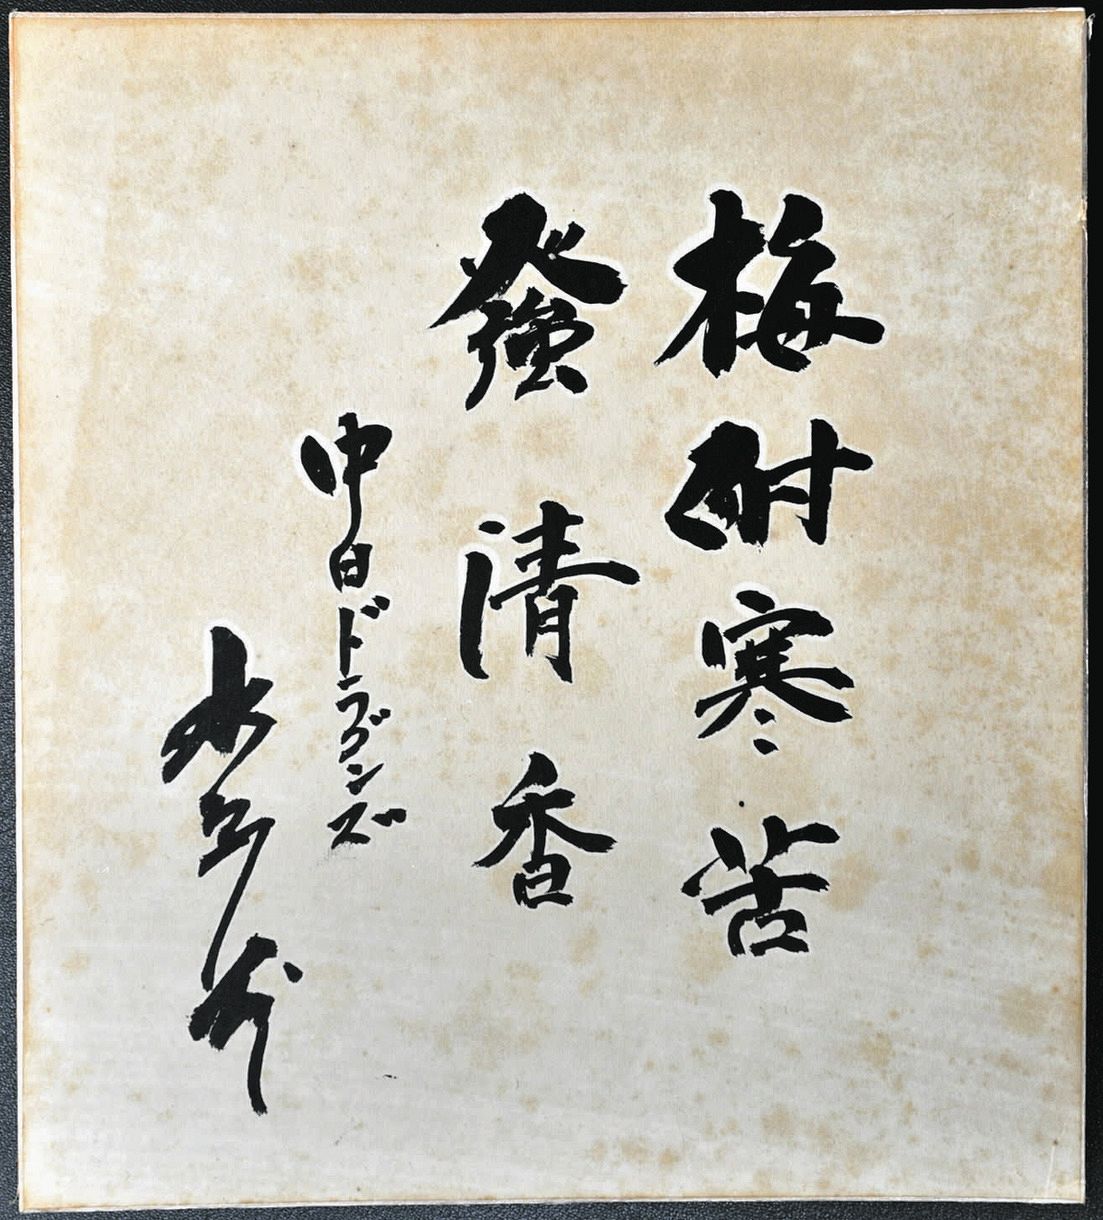 梅耐寒苦
發清香
中日ドラゴンズ